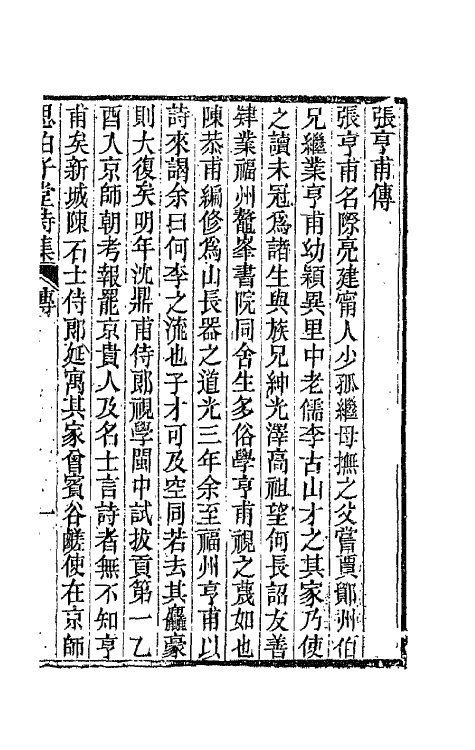 張亨甫傳
張亨甫名際亮建甯人少孤繼母撫之父嘗賈鄖州伯
兄繼業亨甫幼穎異里中老儒李古山才之其家乃使
之讀未冠爲諸生與族兄紳光澤高祖望何長詔友善
肄業福州鼇峯書院同舍生多俗學亨甫視之蔑如也
陳恭甫編修爲山長器之道光三年余至福州亨甫以
詩來謁余曰何李之流也子才可及空同若去其麤豪
則大復矣明年沈鼎甫侍郎視學閩中試拔貢第一乙
酉入京師朝考報罷京貴人及名士言詩者無不知亨
甫矣新城陳石士侍郎延寓其家曾賓谷鹺使在京師
思伯子堂詩集 傳 一